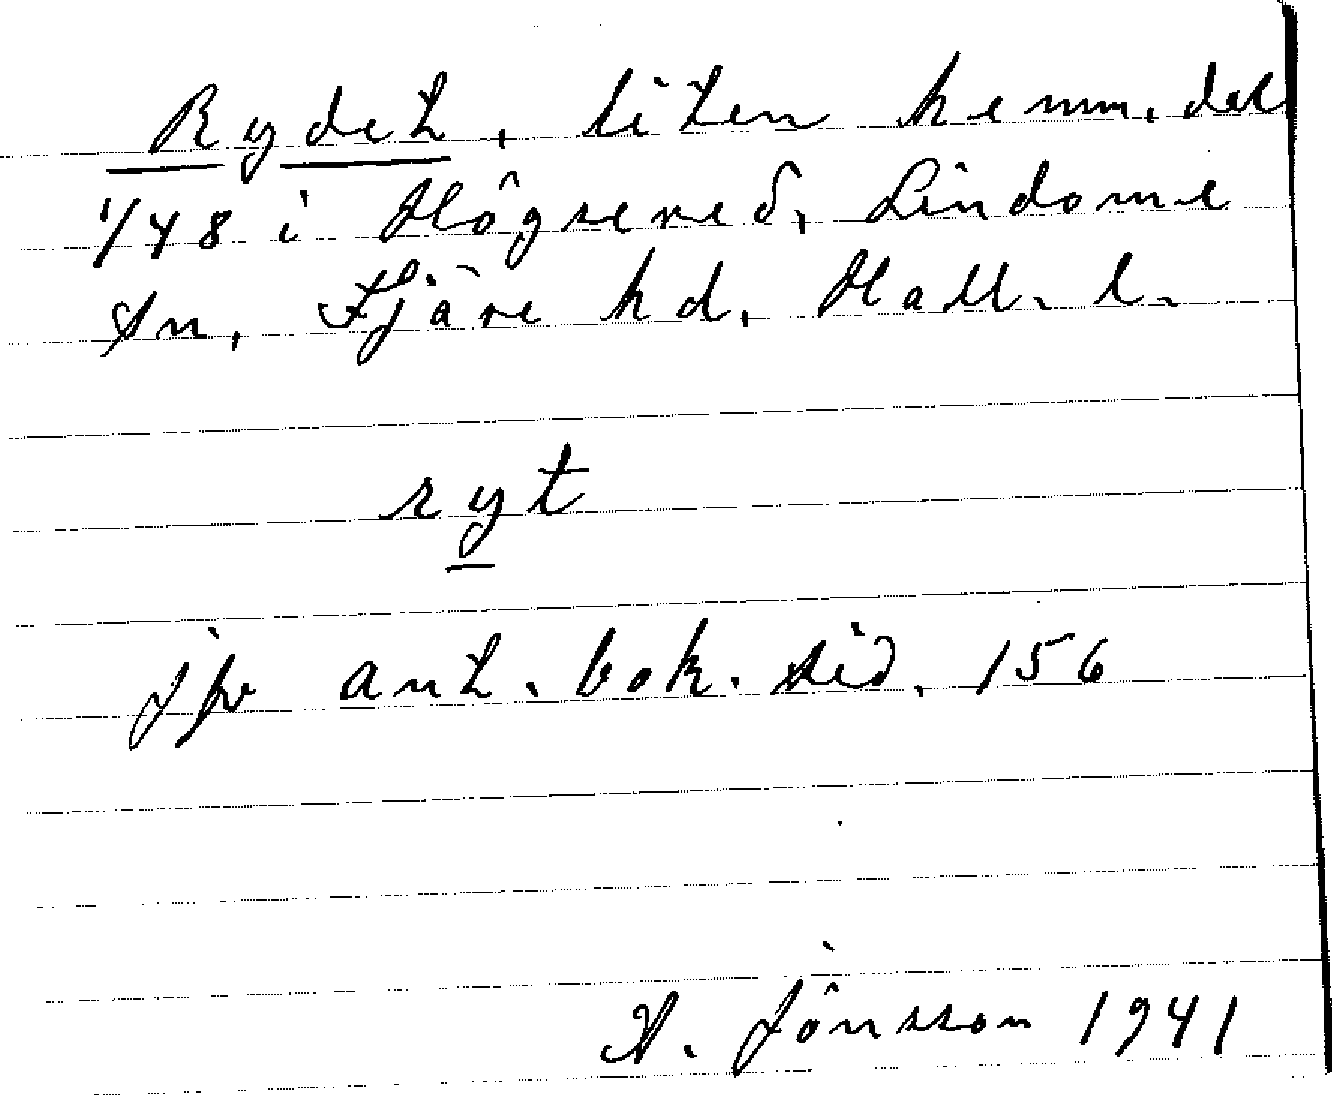 Rydet, liten hemm.del
1/48 i Högsered, Lindome
sn, Fjäre hd, Hall. l.
ryt
jfr ant. bok. sid. 156
H. Jönsson 1941